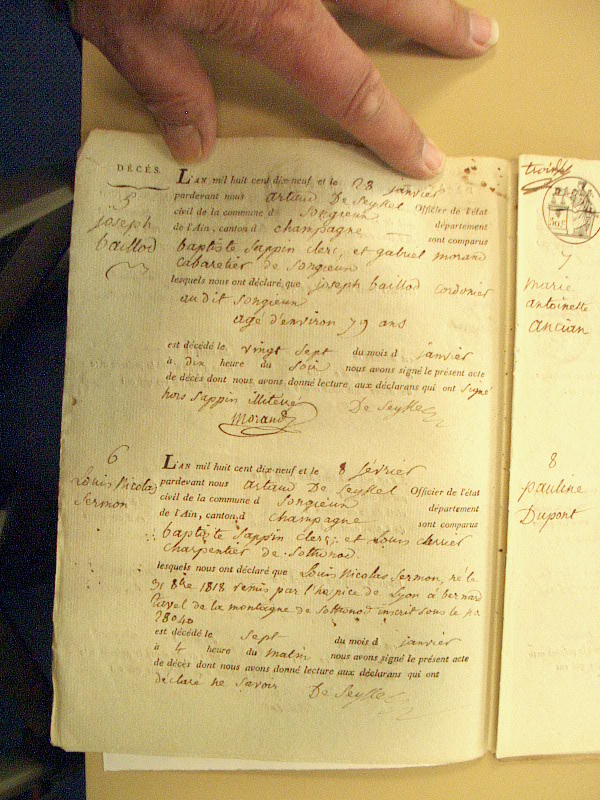 DÉCÈS.
5
joseph
baillod
L'AN mil huit cent dix-neuf, et le 28 janvier
pardevant nous artaud De Seyssel Officier de l'état
civil de la commune d songieux département
de l'Ain, canton d champagne sont comparus
baptiste sappin clerc, et gabriel morand
cabaretier de songieux
lesquels nous ont déclaré que joseph baillod cordonier
au dit songieux
agé d'environ 79 ans
est décédé le vingt sept du mois d janvier
à dix heure du soir nous avons signé le présent acte
de décès dont nous avons donné lecture aux déclarans qui ont signé
hors sappin illiteré
morand De Seyssel
6
Louis Nicolas
Sermon
L'AN mil huit cent dix-neuf et le 8 février
pardevant nous artaud De Seyssel Officier de l'état
civil de la commune d songieux département
de l'Ain, canton d champagne sont comparus
baptiste sappin clerc, et Louis
charpentier de sothonod
lesquels nous ont déclaré que Louis Nicolas Sermon, né le
31 8bre 1818 remis par l'hospice de Lyon à bernard
de la montagne de sothonod inscrit sous le no
28040
est décédé le sept du mois d janvier
à 4 heure du matin nous avons signé le présent acte
de décès dont nous avons donné lecture aux déclarans qui ont
déclaré ne savoir De Seyssel
7
marie
antoinette
ancian
8
pauline
Dupont